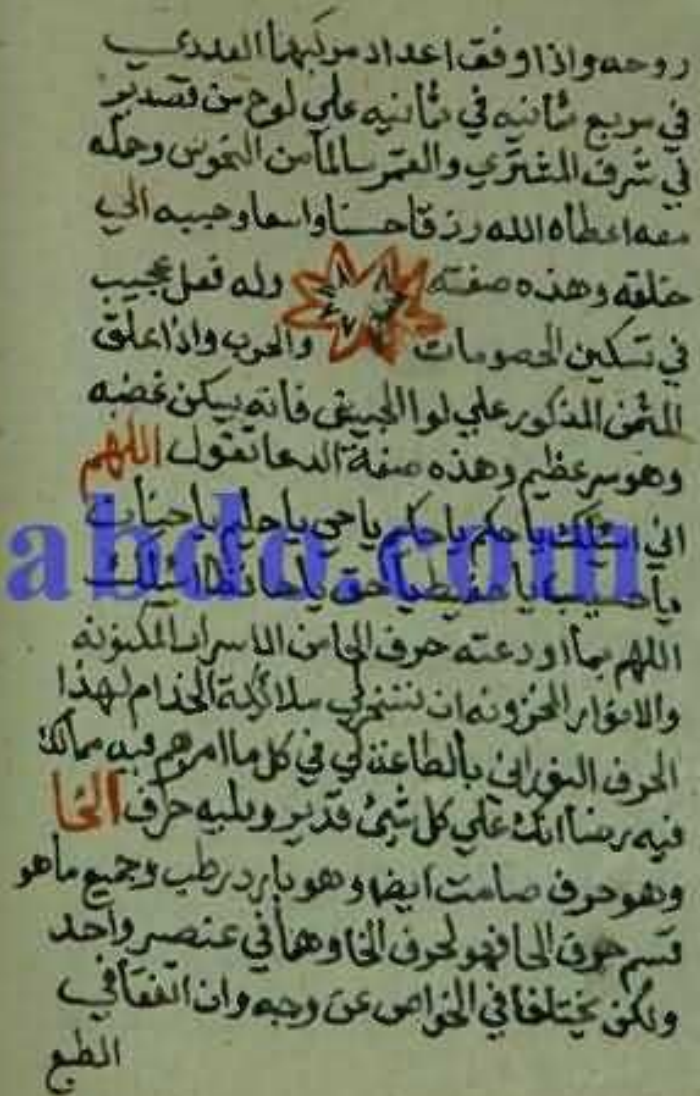 روحه واذا وفق اعداد مركبهما العددي
في مربع ثمانيه في ثمانيه علي لوح من قصدير
في شرف المشتري والقمر سالما من النحوس وحمله
معه اعطاه الله رزقا حسنا واسعا وحببه الي
خلقه وهذه صفته وله فعل عجيب
في تسكين الخصومات والحرب واذا علق
المثمن المذكور علي لوا الجيش فانه يسكن غضبه
وهو سر عظيم وهذه صفة الدعا تقول اللهم
اني اسئلك يا حكم يا حكيم يا حي يا حليم يا حنان
يا حسيب يا حفيظ يا حق يا اسئلك
abdo.com
اللهم بما اودعته حرف الحا من الاسرار المكنونه
والانوار المخزونه ان تسخر لي ملائكة الخدام لهذا
الحرف النوراني بالطاعة لي في كل ما امرهم فيه مما لك
فيه رضا انك علي كل شيئ قدير ويليه حرف الخا
وهو حرف صامت ايضا وهو بارد رطب وجميع ما هو
قسم حرف الحا فهو لحرف الخا وهما في عنصر واحد
ولكن يختلفا في الخواص عن وجه وان اتفقا في
الطبع